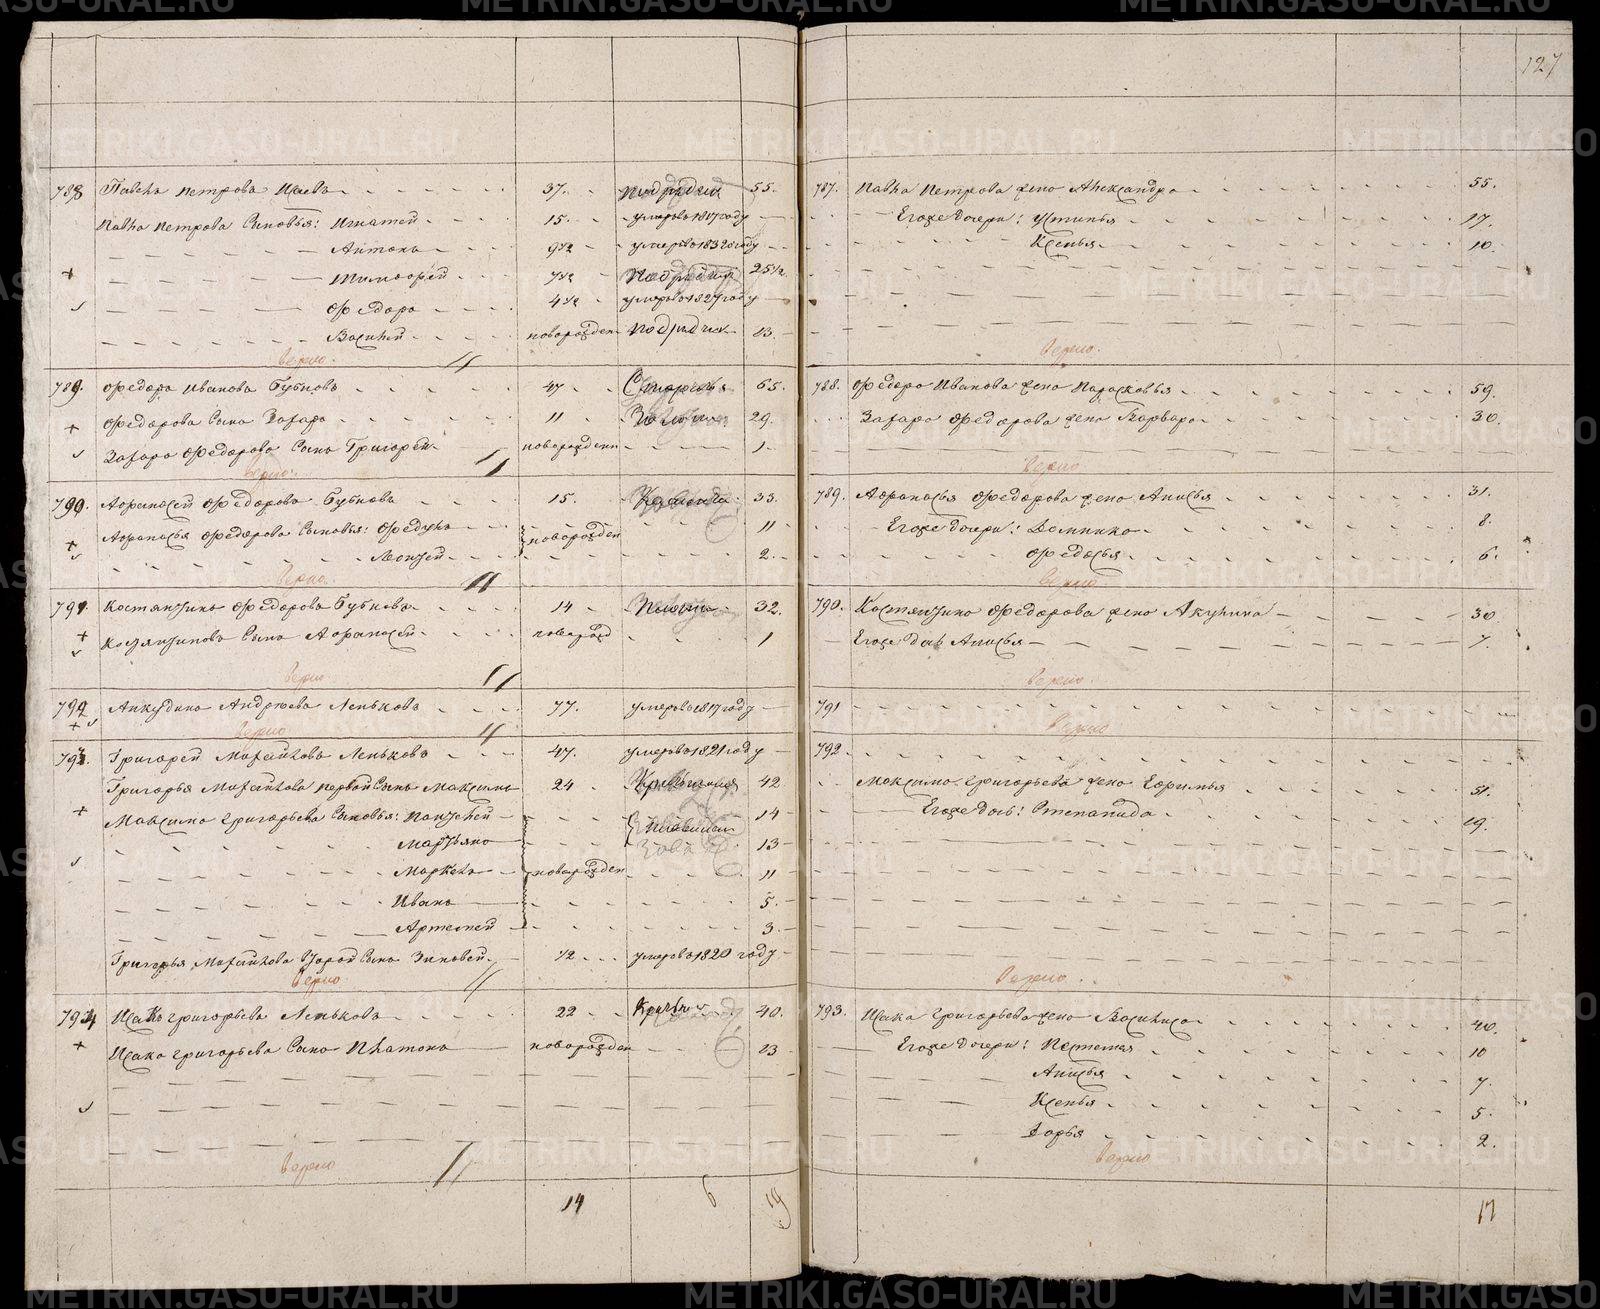 127
788 Павелъ Петровъ Исаевъ 37. 55.
Павла Петрова Сыновья: Игнатей 15. умеръ въ 1817 году
Антонъ 9 1/2 умеръ въ 1832 году
Тимофей 7 1/2 25 1/2
Федоръ 4 1/2 умеръ въ 1827 году
Василей новорожден 13
верно.
789. Федоръ Ивановъ Бубновъ 47 65.
Федорова Сынъ Захаръ 11 29.
Захара Федорова Сынъ Григорей новорожденн 1
верно.
790. Афанасей Федоровъ Бубновъ 15. 33.
Афанасья Федорова Сыновья: Федулъ новорожден 11
Леонтей 2.
верно.
791. Костянтинъ Федоровъ Бубновъ 14 32.
Костянтинова Сынъ Афанасей новорожд 1
верно
792 Анкудинъ Андреевъ Леньковъ 77. умеръ въ 1817 году
верно
793. Григорей Михайловъ Леньковъ 47. умеръ въ 1821 году
Григорья Михайлова первой Сынъ Максимъ 24 42
Максима Григорьева Сыновья: Пантелей 14
Мартьянъ 13
Маркелъ новорожден 11
Иванъ 5.
Артемей 3.
Григорья Михайлова Второй Сынъ Зиновей 12 умеръ въ 1820 году
верно
794 Исакъ Григорьевъ Леньковъ 22 40.
Исака Григорьева Сынъ Платонъ новорожден 13
верно
14 6 19
787. Павла Петрова жена Александра 55.
Егоже дочери: Устинья 17.
Ксенья 10.
верно.
788. Федора Иванова жена Парасковья 59.
Захара Федорова жена Варвара 30.
верно
789. Афанасья Федорова жена Анисья 31.
Егоже дочери: Домника 8.
Федосья 6.
верно
790. Костянтина Федорова жена Акулина 30
Егоже дочь Анисья 7.
верно.
791
верно
792
Максима Григорьева жена Евфимья 51.
Егоже дочь: Степанида 19.
верно.
793. Исака Григорьева жена Василиса 40.
Егоже дочери: 10
Анисья 7.
Ксенья 5.
Дарья 2.
верно
17
METRIKI.GASO-URAL.RU